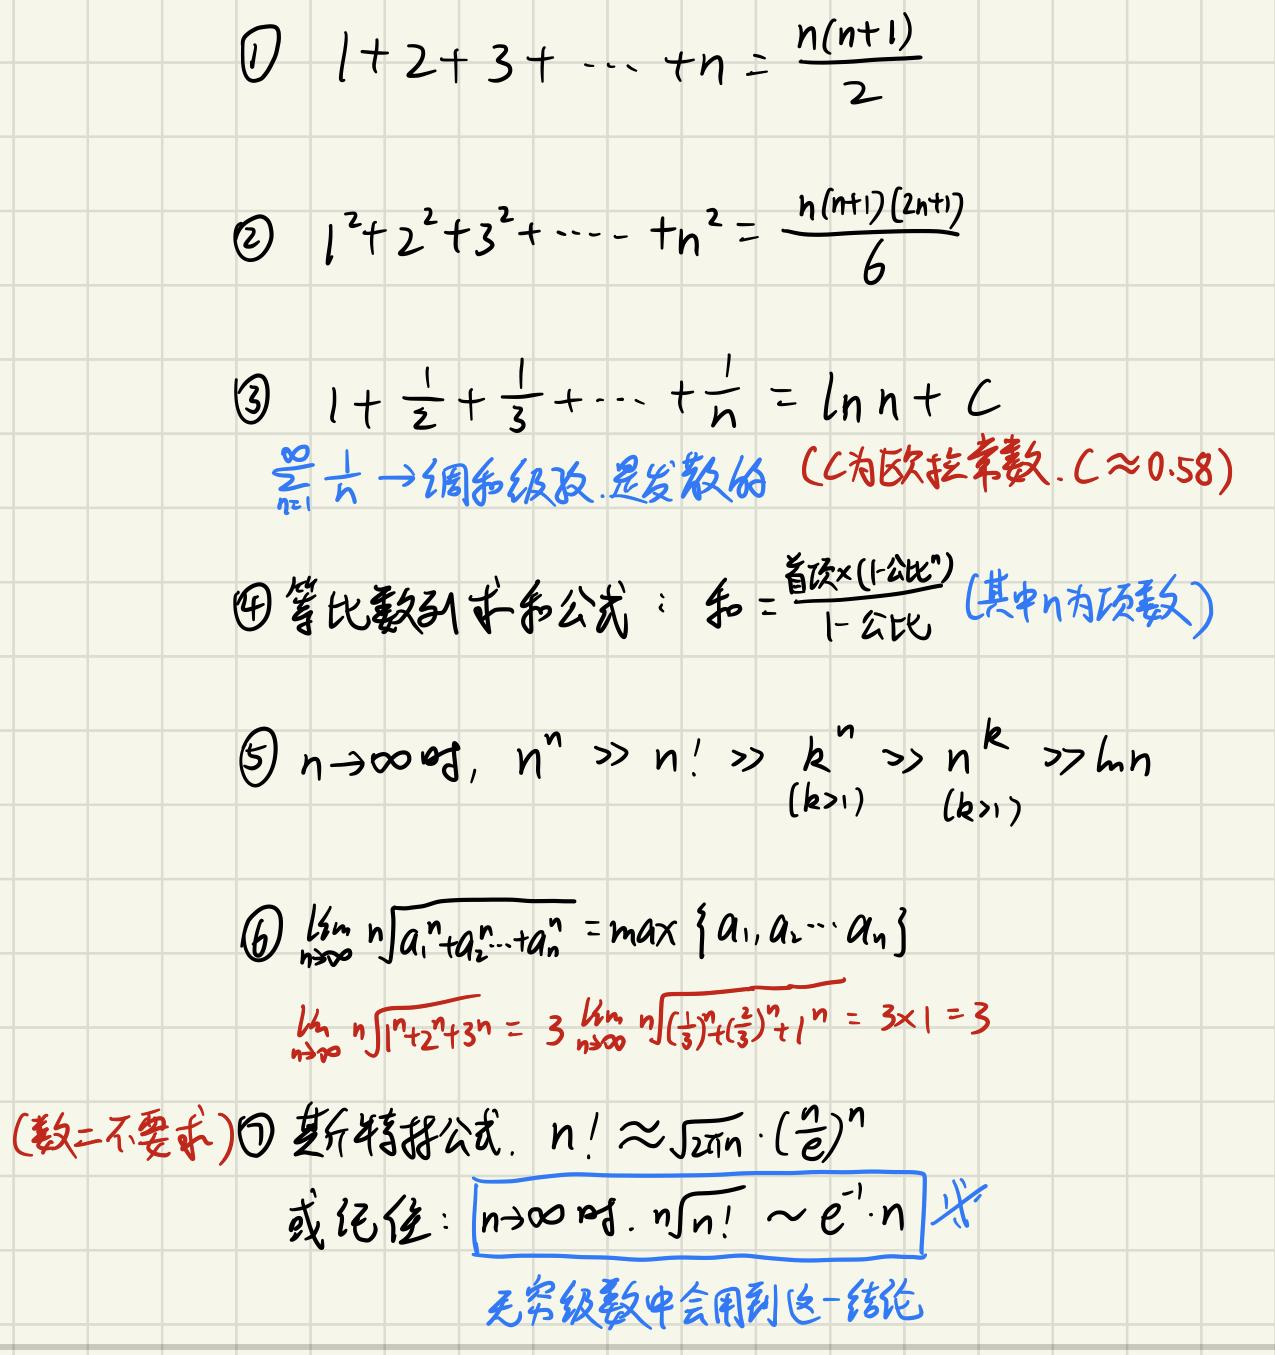 ① 1+2+3+⋯+n = n(n+1)/2
② 1²+2²+3²+⋯⋯+n² = n(n+1)(2n+1)/6
③ 1+1/2+1/3+⋯+1/n = ln n + C
∑_{n=1}^{∞} 1/n → 调和级数.是发散的 (C为欧拉常数.C≈0.58)
④ 等比数列求和公式: 和 = 首项×(1-公比ⁿ)/(1-公比) (其中n为项数)
⑤ n→∞时, nⁿ >> n! >> kⁿ >> n^k >> ln n
(k>1) (k>1)
⑥ lim_{n→∞} ⁿ√(a₁ⁿ+a₂ⁿ⋯+aₙⁿ) = max {a₁,a₂⋯aₙ}
lim_{n→∞} ⁿ√(1ⁿ+2ⁿ+3ⁿ) = 3 lim_{n→∞} ⁿ√((1/3)ⁿ+(2/3)ⁿ+1ⁿ) = 3×1=3
(数二不要求) ⑦ 斯特林公式. n! ≈ √(2πn)·(n/e)ⁿ
或记住: n→∞时. ⁿ√(n!) ~ e⁻¹·n
无穷级数中会用到这一结论